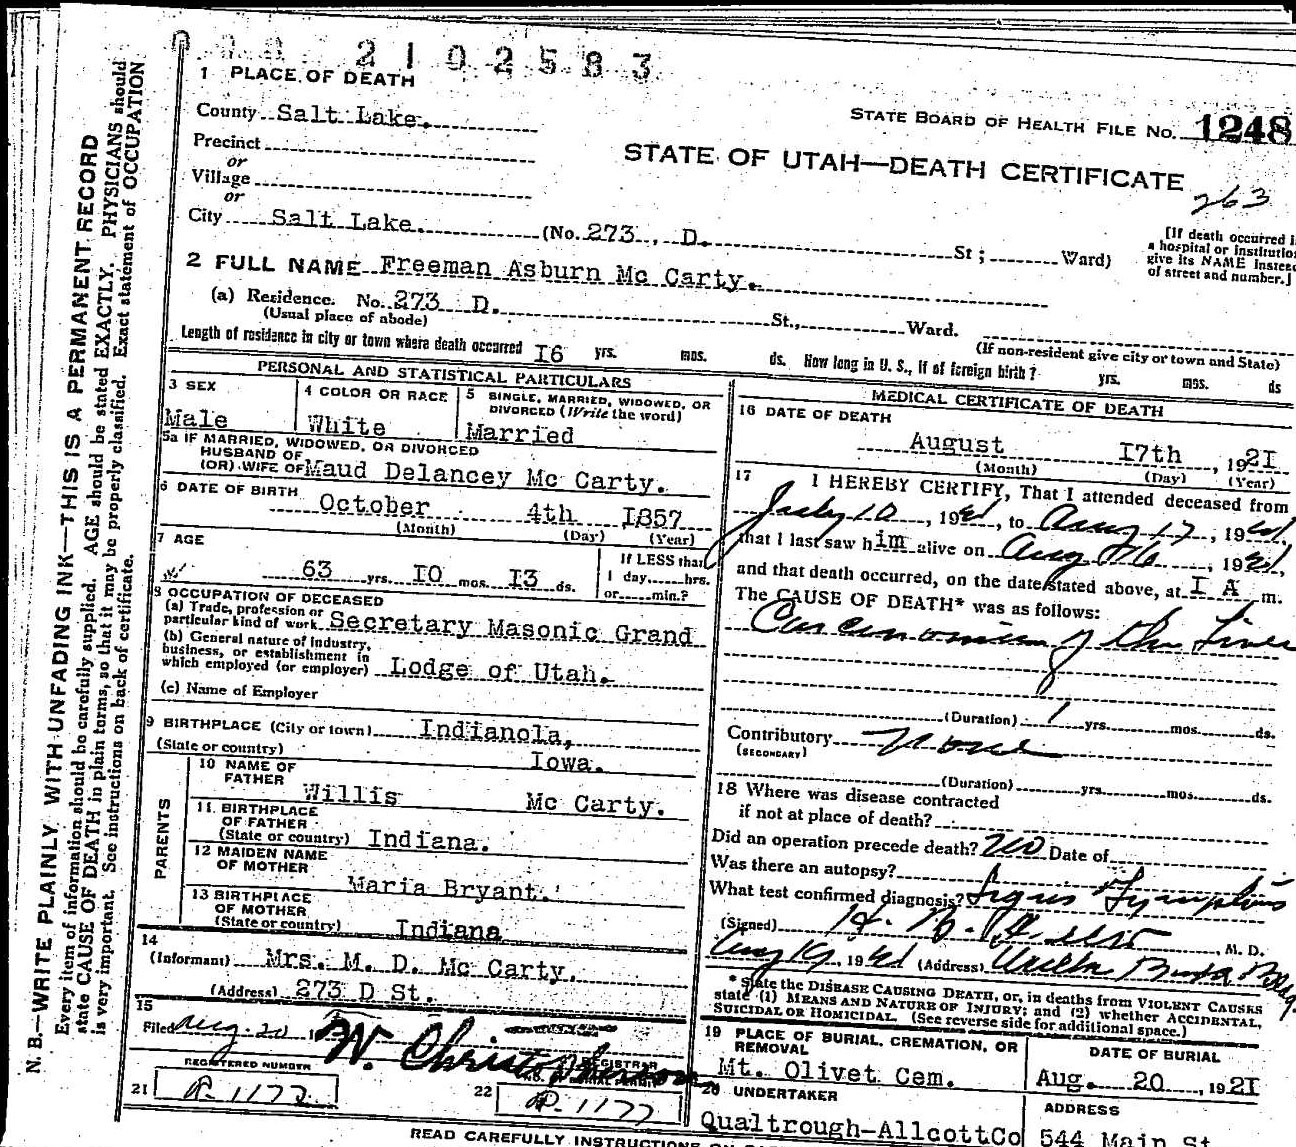 2102583
1 PLACE OF DEATH
County Salt Lake.
STATE BOARD OF HEALTH FILE NO. 1248
Precinct
or
Village
or
STATE OF UTAH—DEATH CERTIFICATE
263
City Salt Lake. (No. 273, D. St; Ward)
[If death occurred in
a hospital or institution
give its NAME instead
of street and number.]
2 FULL NAME Freeman Asburn Mc Carty.
(a) Residence. No. 273 D. St., Ward.
(Usual place of abode)
(If non-resident give city or town and State)
Length of residence in city or town where death occurred I6 yrs. mos. ds. How long in U. S., if of foreign birth? yrs. mos. ds
PERSONAL AND STATISTICAL PARTICULARS
3 SEX
Male
4 COLOR OR RACE
White
5 SINGLE, MARRIED, WIDOWED, OR
DIVORCED (Write the word)
Married
5a IF MARRIED, WIDOWED, OR DIVORCED
HUSBAND OF
(OR) WIFE OF Maud Delancey Mc Carty.
6 DATE OF BIRTH
October 4th I857
(Month) (Day) (Year)
7 AGE
63 yrs. IO mos. I3 ds.
If LESS than
1 day,......hrs.
or......min.?
8 OCCUPATION OF DECEASED
(a) Trade, profession or
particular kind of work Secretary Masonic Grand
(b) General nature of Industry,
business, or establishment in
which employed (or employer) Lodge of Utah.
(c) Name of Employer
9 BIRTHPLACE (City or town) Indianola,
(State or country) Iowa.
PARENTS
10 NAME OF
FATHER
Willis Mc Carty.
11. BIRTHPLACE
OF FATHER
(State or country) Indiana.
12 MAIDEN NAME
OF MOTHER
Maria Bryant.
13 BIRTHPLACE
OF MOTHER
(State or country) Indiana
14
(Informant) Mrs. M. D. Mc Carty.
(Address) 273 D St.
15
Filed Aug. 20, 1
W. Christopherson
REGISTRAR
REGISTERED NUMBER
21 P. 1177
22 P. 1177
MEDICAL CERTIFICATE OF DEATH
16 DATE OF DEATH
August I7th, 192I
(Month) (Day) (Year)
17 I HEREBY CERTIFY, That I attended deceased from
July 10, 1921, to Aug 17, 1921,
that I last saw him alive on Aug 16, 1921,
and that death occurred, on the date stated above, at I A m.
The CAUSE OF DEATH* was as follows:
Carcinomia of the Liver
(Duration) 1 yrs. mos. ds.
Contributory None
(SECONDARY)
(Duration) yrs. mos. ds.
18 Where was disease contracted
if not at place of death?
Did an operation precede death? No Date of
Was there an autopsy?
What test confirmed diagnosis? Signs Symptoms
(Signed) H. M. D.
Aug 19, 1921 (Address)
* State the DISEASE CAUSING DEATH, or, in deaths from VIOLENT CAUSES
state (1) MEANS AND NATURE OF INJURY; and (2) whether ACCIDENTAL,
SUICIDAL OR HOMICIDAL. (See reverse side for additional space.)
19 PLACE OF BURIAL, CREMATION, OR
REMOVAL
Mt. Olivet Cem.
DATE OF BURIAL
Aug. 20, 192I
20 UNDERTAKER
Qualtrough-AllcottCo
ADDRESS
544 Main St
READ CAREFULLY INSTRUCTIONS ON
N. B.—WRITE PLAINLY WITH UNFADING INK—THIS IS A PERMANENT RECORD
Every item of information should be carefully supplied. AGE should be stated EXACTLY. PHYSICIANS should
state CAUSE OF DEATH in plain terms, so that it may be properly classified. Exact statement of OCCUPATION
is very important. See instructions on back of certificate.